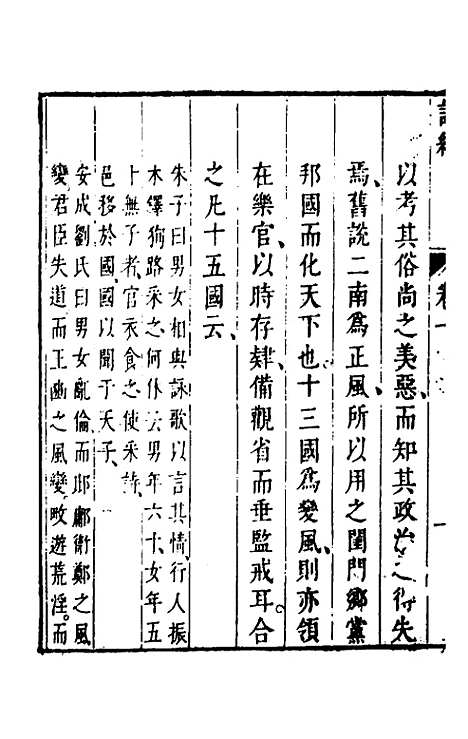 詩經
卷一
以考其俗尚之美惡、而知其政治之得失
焉、舊說二南爲正風、所以用之閨門鄉黨
邦國而化天下也、十三國爲變風、則亦領
在樂官、以時存肄、備觀省而垂監戒耳。合
之凡十五國云、
朱子曰男女相與詠歌以言其情、行人振
木鐸徇路采之、何休云男年六十、女年五
十無子者、官衣食之使采詩、
邑移於國、國以聞于天子、
安成劉氏曰男女亂倫而邶鄘衛鄭之風
變君臣失道而王豳之風變畋遊荒淫。而